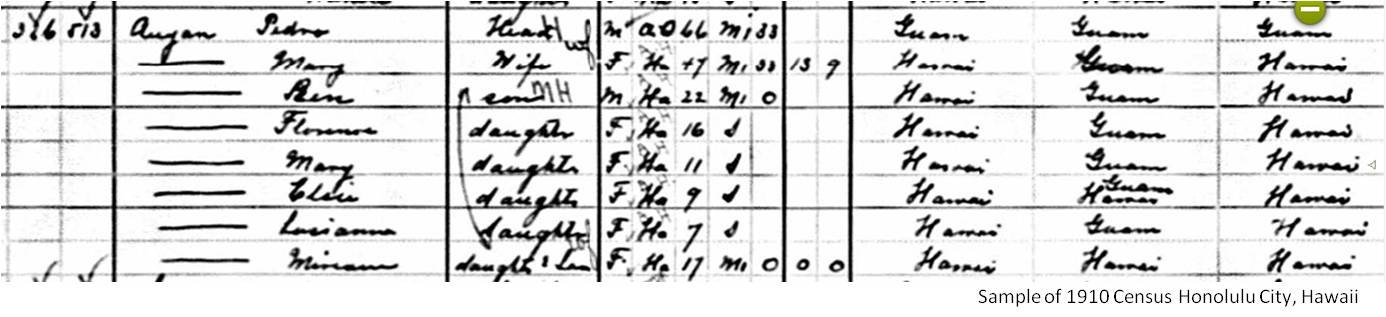 326 513 Augan Pedro Head M 66 M1 33 Guam Guam Guam
Mary Wife F Ha 47 M1 33 13 9 Hawai Hawai
Ben son M Ha 22 M1 0 Hawai Guam Hawai
Florence daughter F Ha 16 S Hawai Guam Hawai
Mary daughter F Ha 11 S Hawai Guam Hawai
Elsie daughter F Ha 9 S Hawai Guam Hawai
Lucianna daughter F Ha 7 S Hawai Guam Hawai
Miriam daughter Law F Ha 17 M1 0 0 0 Hawai Hawai Hawai
Sample of 1910 Census Honolulu City, Hawaii